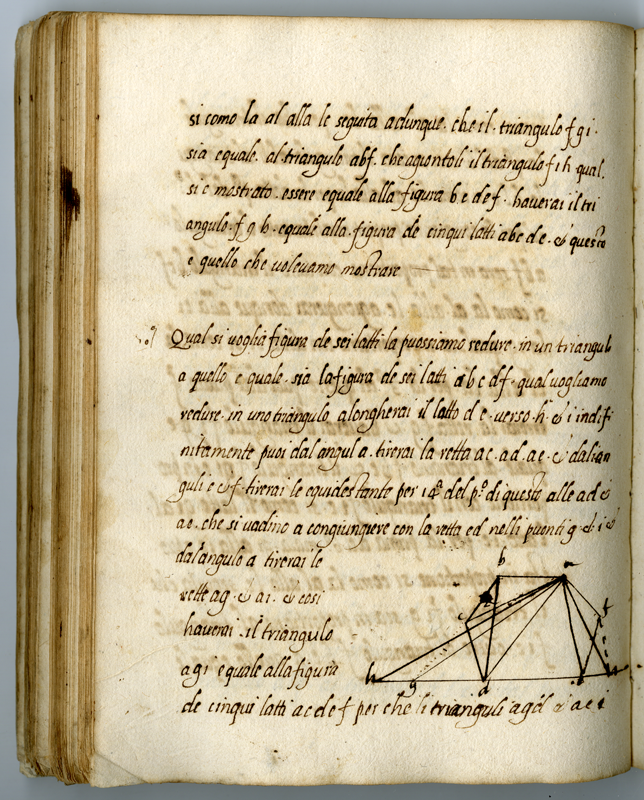 si como la al alla le seguita adunque. che il. triangulo f g i.
sia equale. al triangulo abf. che agiontoli il triangulo f i h qual.
si e mostrato. essere equale alla figura b c d e f. haverai il tri
angulo. f g h. equale alla. figura de cinqui latti abc d e. & questo
e quello che volevamo mostrare
Qual si voglia figura de sei latti la puossiamo redure. in un triangulo
a quello e quale. sia la figura de sei latti a b c d f. qual vogliamo
redure. in uno triangulo alongherai il latto d e. verso h. & i indifi
nitamente puoi dal angul a. tirerai la retta ac. ad. ae. & dalian
guli c & f. tirerai le equidestante per 14ª del pº. di questo alle ad &
ae. che si vadino a congiungiere con la retta ed nelli puonti g. & i &
dal angulo a tirerai le
rette ag. & ai. & cosi
haverai. il triangulo
agi equale alla figura
de cinqui latti acdef per che li trianguli agd & aei
b a
c f
h g d e i